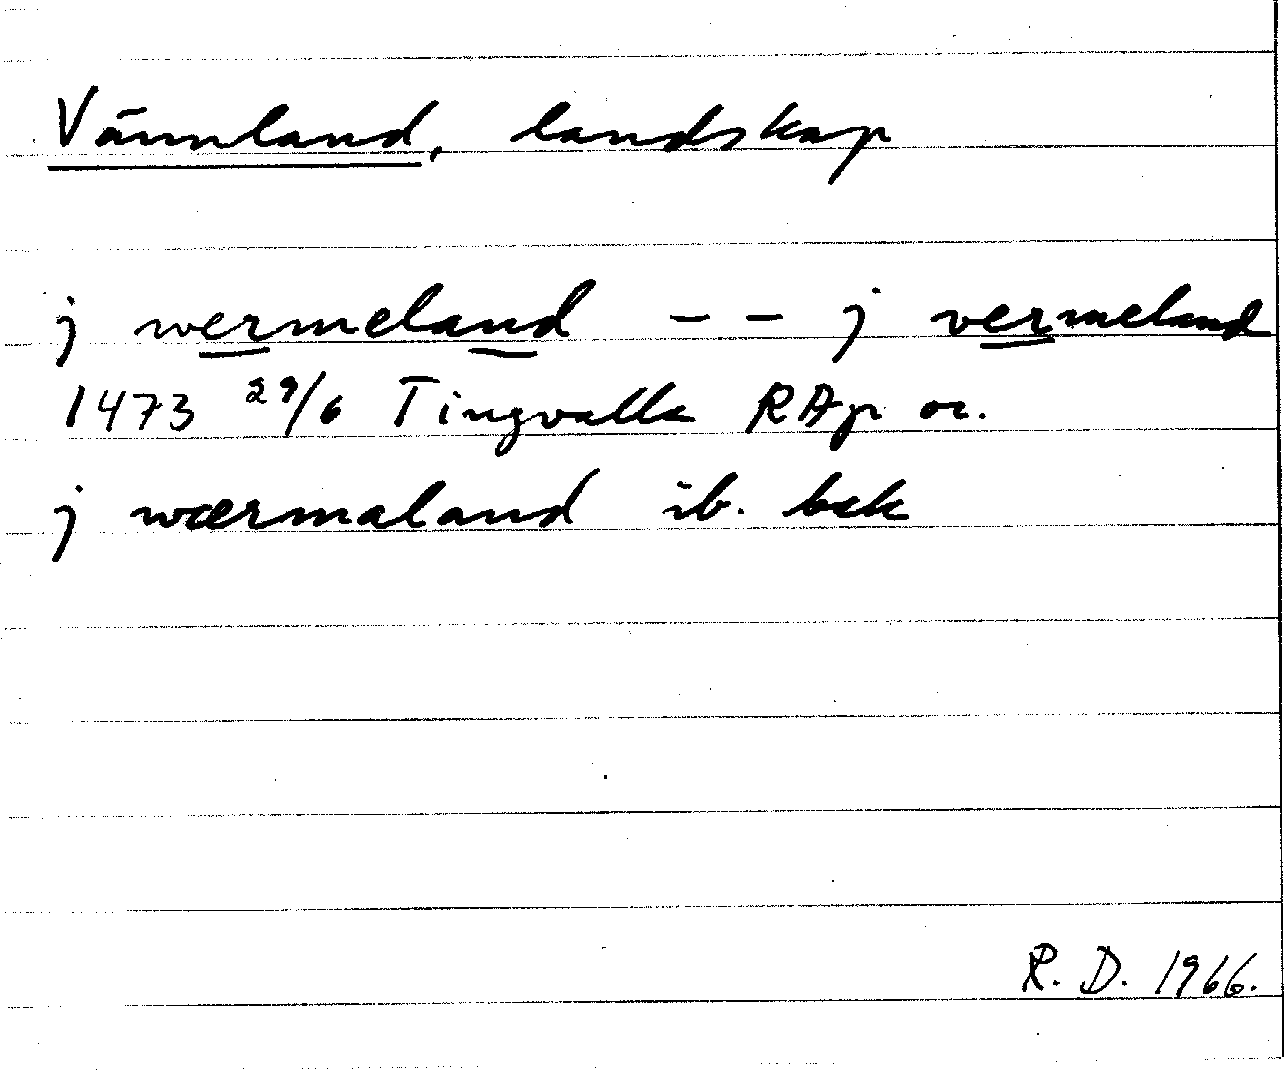 Värmland, landskap
j wermeland - - j vermeland
1473 29/6 Tingvalla RAp or.
j wærmaland ib. bak
R. D. 1966.